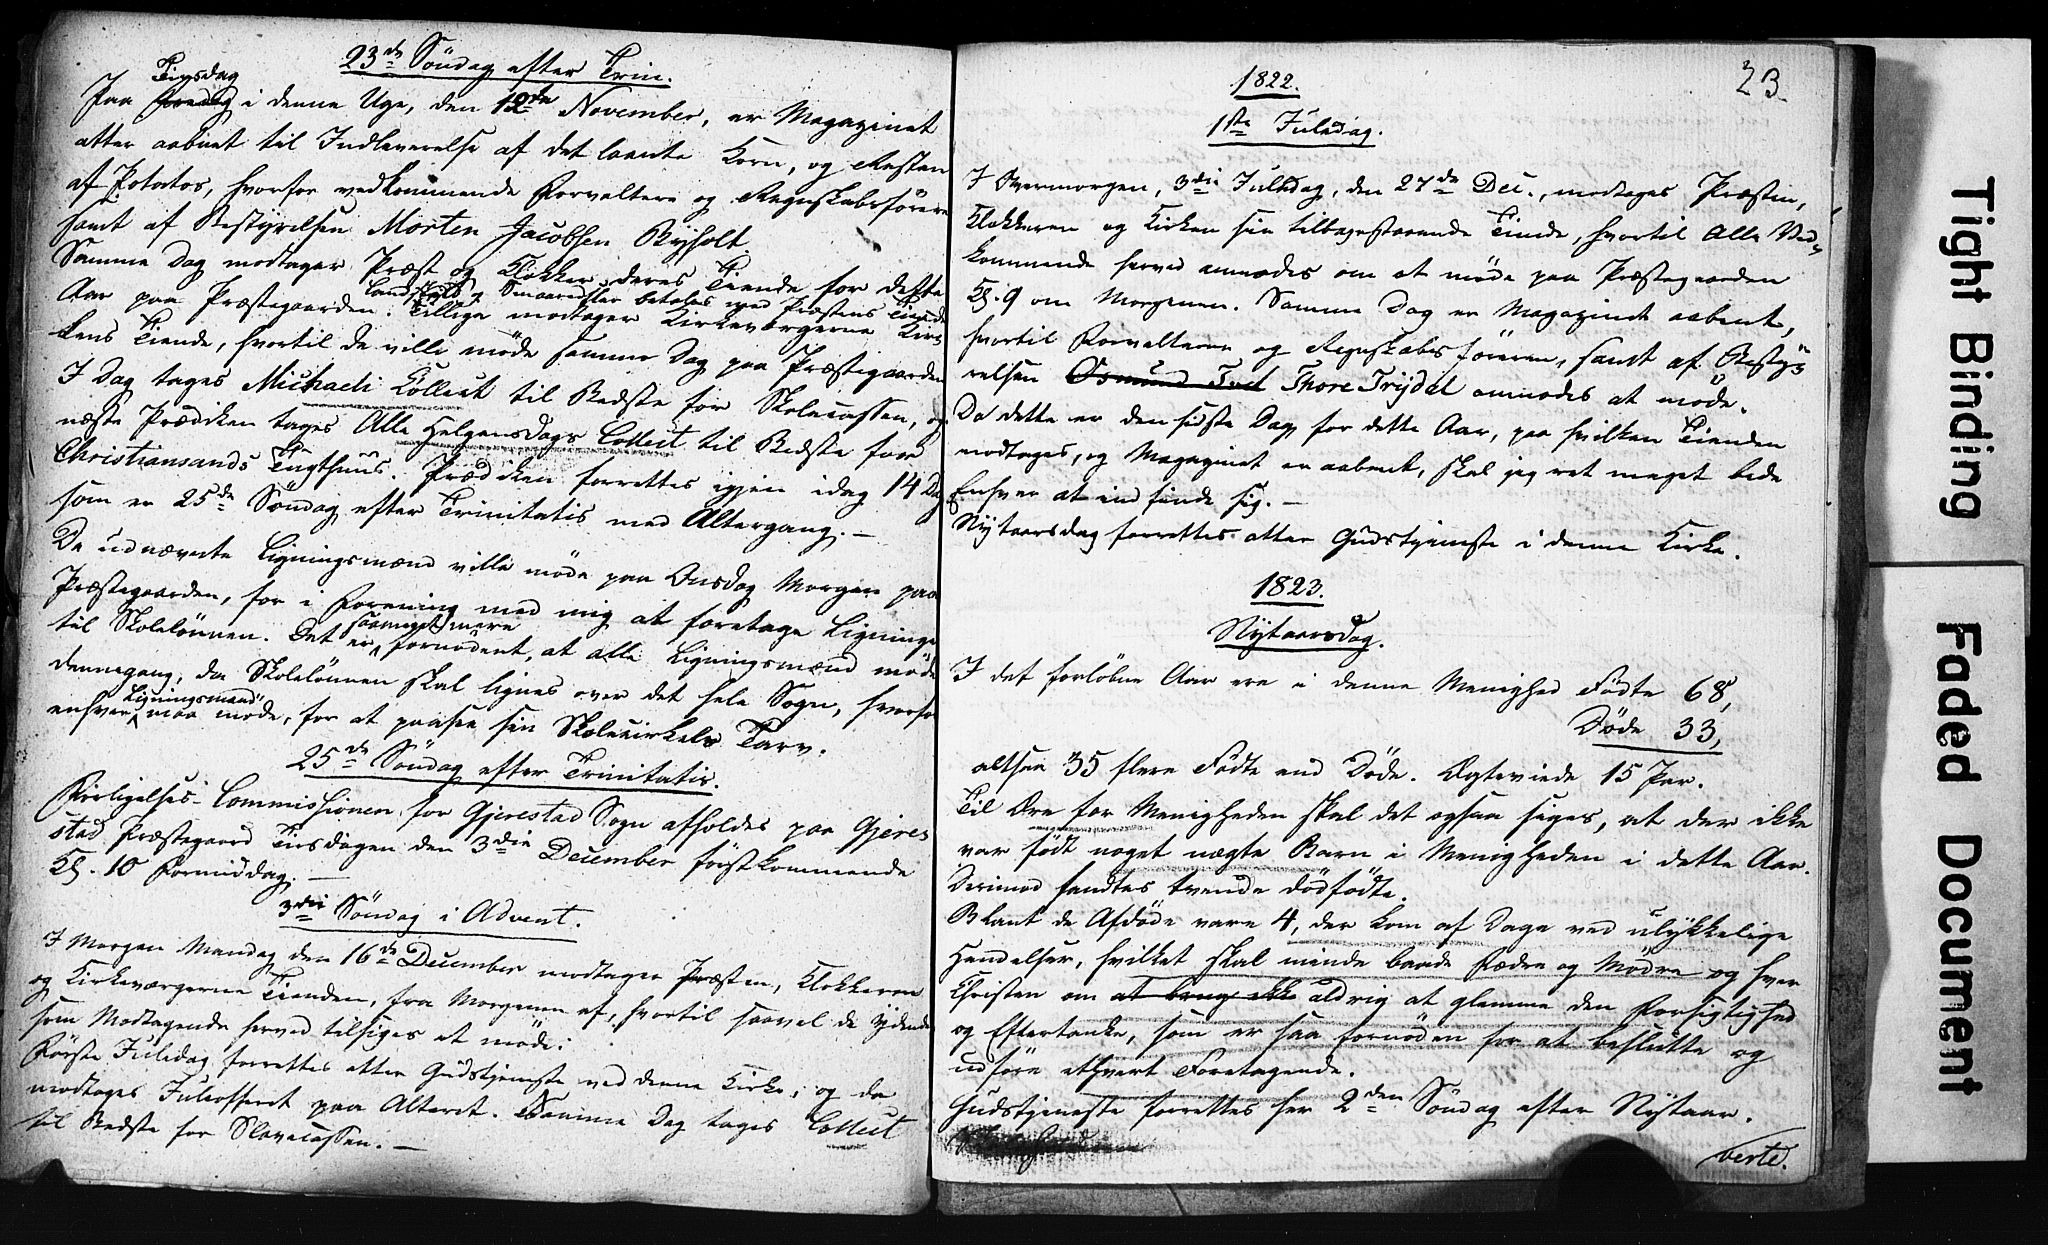 23de Söndag efter Trin.
Tirsdag
Paa i denne Uge, den 12te November, er Magazinet
atter aabnet til Indleverelse af det laante Korn, og Resten
af Potatos, hvorfor vedkommende Forvaltere og Regnskabsförere
samt af Bestyrelsen Morten Jacobsen Rysholt
Samme Dag modtager Præst og Klokker deres Tiende for dette
Landskyld og Smaarester betales med Præstens Tiende
Aar paa Præstegaarden. Tillige modtager Kirkeværgerne Kir-
kens Tiende, hvortil de ville möde samme Dag paa Præstegaarden
I Dag tages Michaeli Collect til Bedste for Skolecassen, og
næste Prædiken tages Alle Helgensdags Collect til Bedste for
Christiansands Tugthuus. Prædiken forrettes igjen idag 14 Dage
som er 25de Söndag efter Trinitatis med Altergang. —
De udnævnte Ligningsmænd ville möde paa Onsdag Morgen paa
Præstegaarden, for i Forening med mig at foretage Ligningen
saameget mere
til Skolelönnen. Det er fornödent, at alle Ligningsmænd möde
dennegang, da Skolelönnen skal lignes over det hele Sogn, hvorfor
Ligningsmand
enhver maa möde, for at paasee sin Skolecirkels Tarv.
25de Söndag efter Trinitatis.
Forligelses-Commissionen for Gjerestad Sogn afholdes paa Gjere-
stad Præstegaard Tirsdagen den 3die December förstkommende
Kl. 10 Formiddag. —
3die Söndag i Advent.
I Morgen Mandag den 16de December modtager Præsten, Klokkeren
og Kirkeværgerne Tienden, fra Morgenen af, hvortil saavel de Ydende
som Modtagende herved tilsiges at möde.
Förste Juledag forrettes atter Gudstjeneste ved denne Kirke, og da
modtages Juleofferet paa Alteret. Samme Dag tages Collect
til Bedste for Slavecassen. —
23.
1822.
1ste Juledag.
I Overmorgen, 3die Juledag, den 27de Dec., modtages Præsten,
Klokkeren og Kirken sin tilbagestaaende Tiende, hvortil Alle Ved-
kommende herved anmodes om at möde paa Præstegaarden
Kl. 9 om Morgenen. Samme Dag er Magazinet aabent,
hvortil Forvalteren og Regnskabsföreren, samt af Besty-
relsen Osmund Tvet Thore Trydal anmodes at möde.
Da dette er den sidste Dag for dette Aar, paa hvilken Tienden
modtages, og Magazinet er aabent, skal jeg ret meget bede
Enhver at indfinde sig. —
Nytaarsdag forrettes atter Gudstjeneste i denne Kirke.
1823.
Nytaarsdag.
I det forlöbne Aar ere i denne Menighed Födte 68,
Döde 33,
altsaa 35 flere Födte end Döde. Ægteviede 15 Par.
Til Ære for Menigheden skal det ogsaa siges, at der ikke
var födt noget uægte Barn i Menigheden i dette Aar.
Derimod fandtes tvende dödfödte.
Blant de Afdöde vare 4, der kom af Dage ved ulykkelige
Hendelser, hvilket skal minde baade Fædre og Mödre og hver
Christen om at bruge ikke aldrig at glemme den Forsigtighed
og Eftertanke, som er saa fornöden for at beslutte og
udföre ethvert Foretagende.
Gudstjeneste forrettes her 2den Söndag efter Nytaar.
verte.
Tight Binding
Faded Document